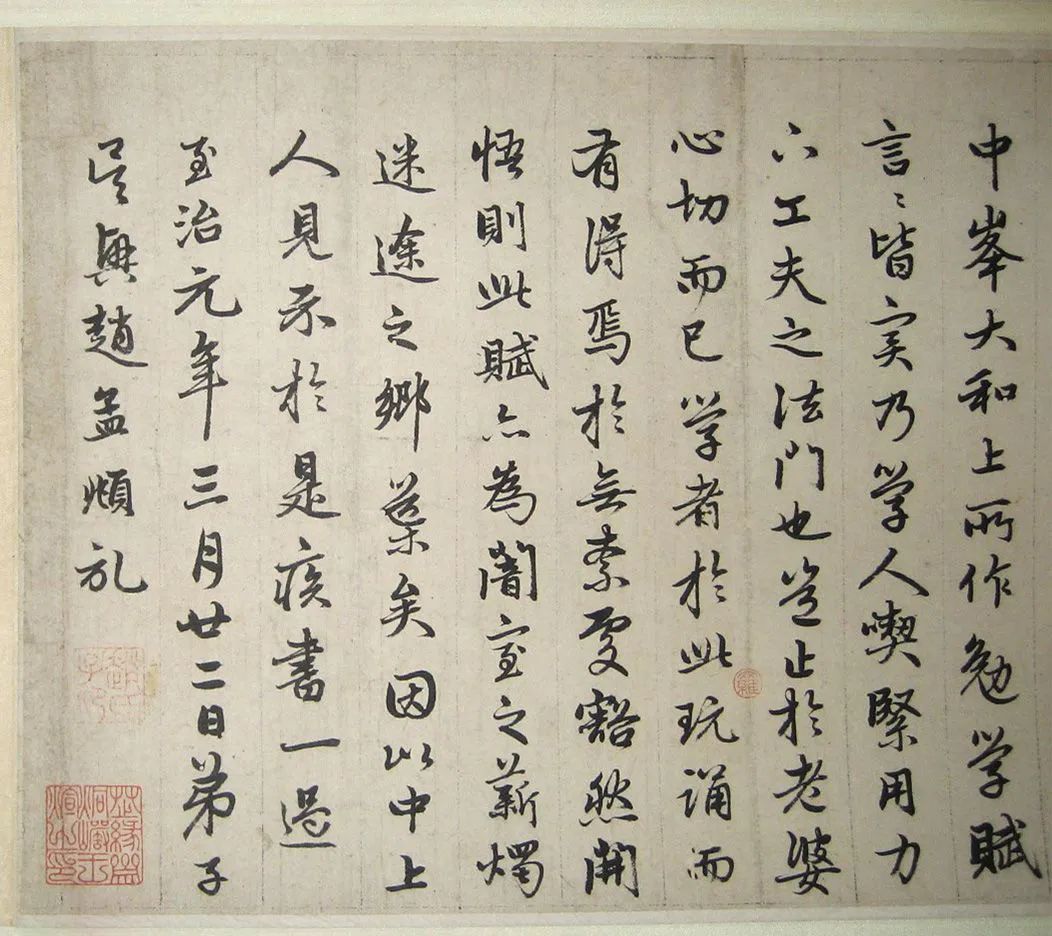 中峯大和上所作勉学賦
言〻皆实乃学人喫緊用力
下工夫之法門也豈止於老婆
心切而已学者於此玩誦而
有得焉於無索處豁然開
悟則此賦亦為闇室之薪燭
迷途之鄉導矣因以中上
人見示於是疾書一過
至治元年三月廿二日弟子
吳興趙孟頫
趙氏子昂